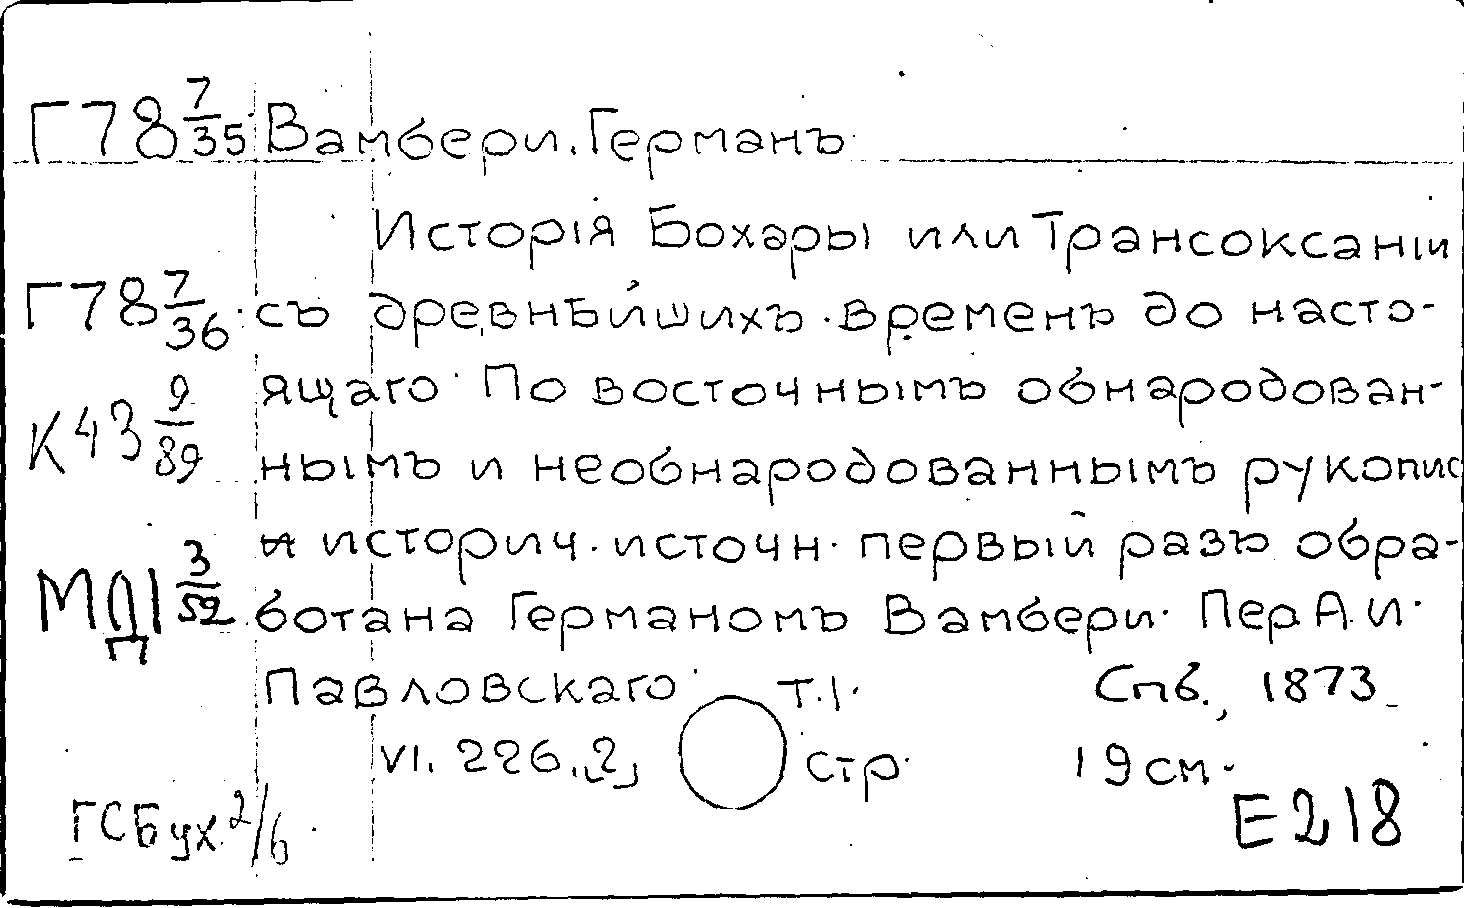 Г78 7/35 Вамбери. Германъ
Исторія Бохары или Трансоксаніи
Г78 7/36 съ древнѣйшихъ временъ до насто-
ящаго По восточнымъ обнародован-
К43 9/89 нымъ и необнародованнымъ рукопис
и историч. источн. первый разъ обра-
МД1 3/52 ботана Германомъ Вамбери. Пер А. И.
Павловскаго Т. I. Спб., 1873
VI. 226. 2, стр. 19 см.
ГСБ ух. 2/6 Е218